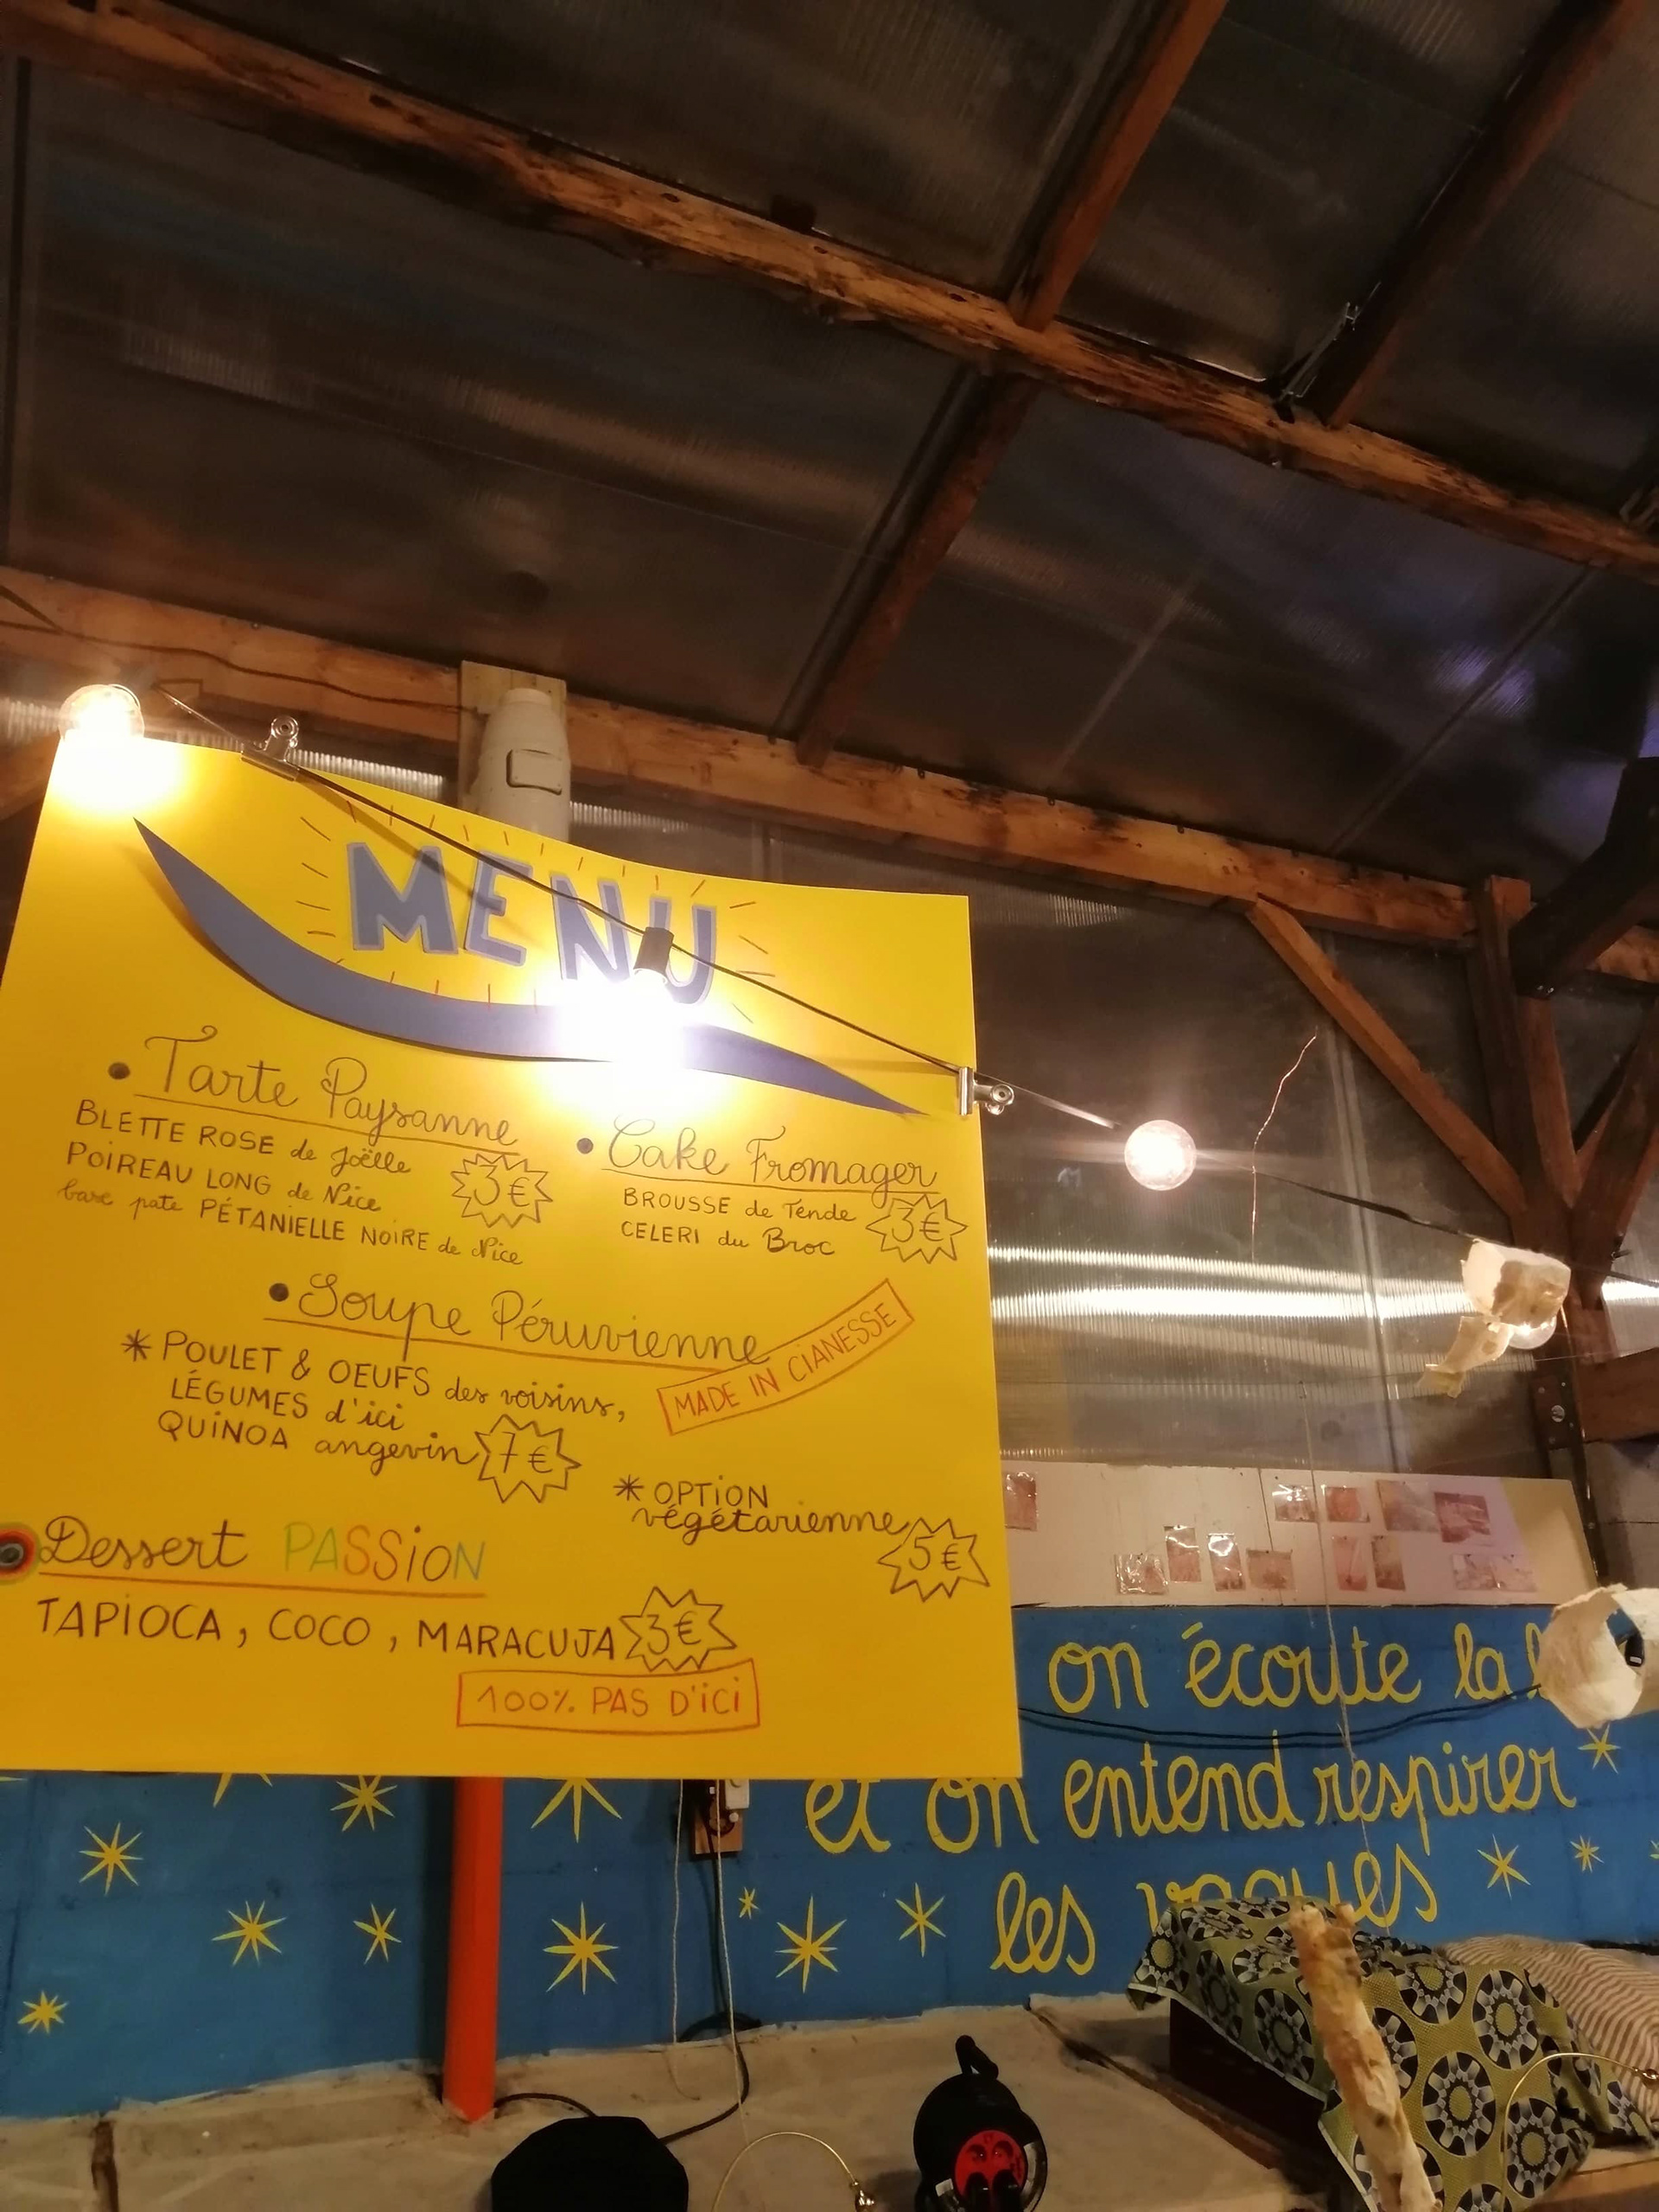 MENU
Tarte Paysanne
BLETTE ROSE de Joëlle
POIREAU LONG de Nice
base pate PÉTANIELLE NOIRE de Nice
3€
Cake Fromager
BROUSSE de Tende
CELERI du Broc
3€
Soupe Péruvienne
MADE IN CIANESSE
* POULET & OEUFS des voisins,
LÉGUMES d'ici
QUINOA angevin
7€
* OPTION
végétarienne
5€
Dessert PASSION
TAPIOCA, COCO, MARACUJA
3€
100% PAS D'ICI
on écoute la
et on entend respirer
les vagues